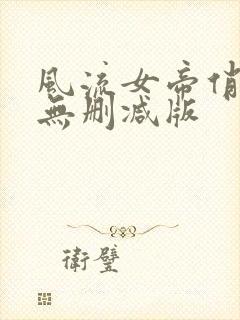 風流女帝俏
無刪減版
衛璧